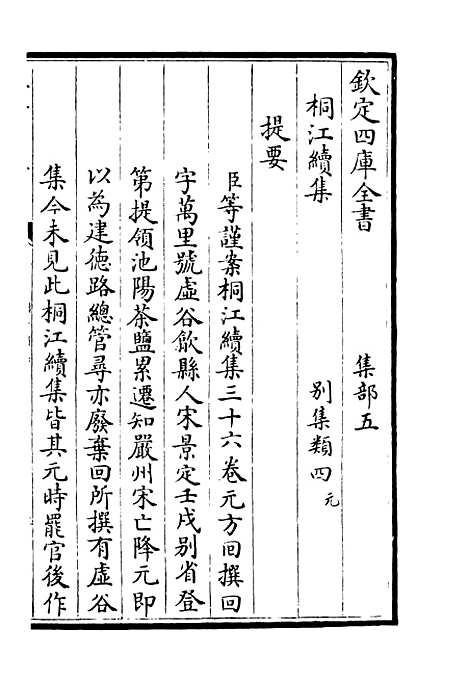 欽定四庫全書　集部五
桐江續集　別集類四元
提要
臣等謹案桐江續集三十六卷元方回撰回
字萬里號虛谷歙縣人宋景定壬戌别省登
第提領池陽茶鹽累遷知嚴州宋亡降元即
以為建德路總管尋亦廢棄回所撰有虛谷
集今未見此桐江續集皆其元時罷官後作